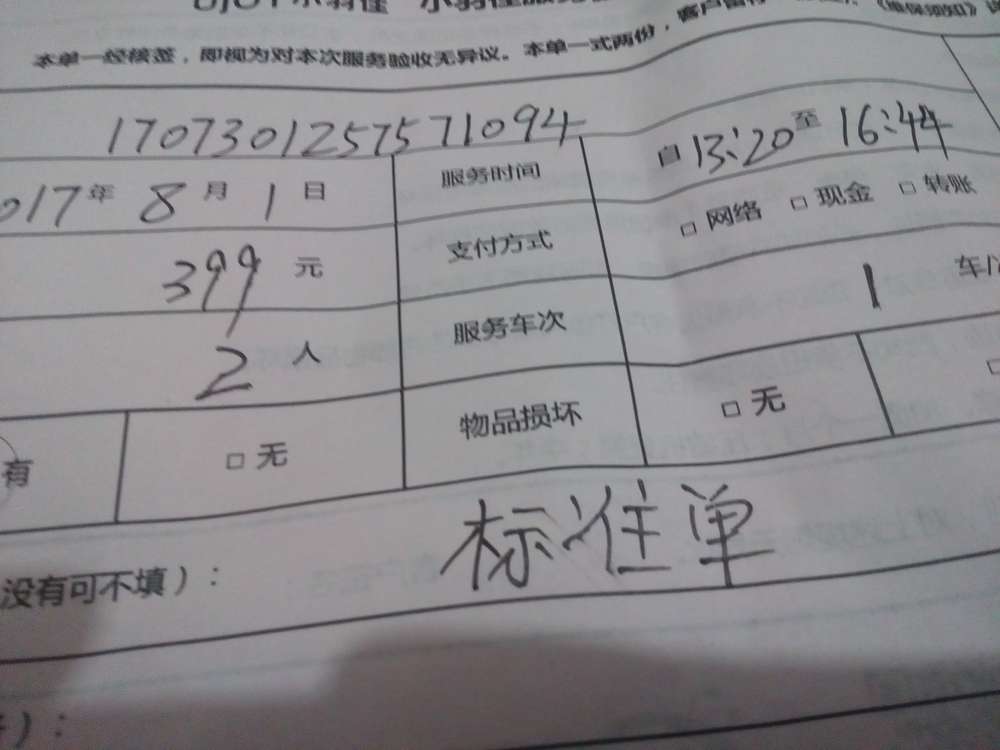 本单一经核签，即视为对本次服务验收无异议。本单一式两份，
170730125757​1094
2017年 8月 1日 服务时间 自 13:20 至 16:44
399 元 支付方式 □ 网络 □ 现金 □ 转账
2 人 服务车次 1 车/
有 □ 无 物品损坏 □ 无 □
没有可不填）： 标准单
）：